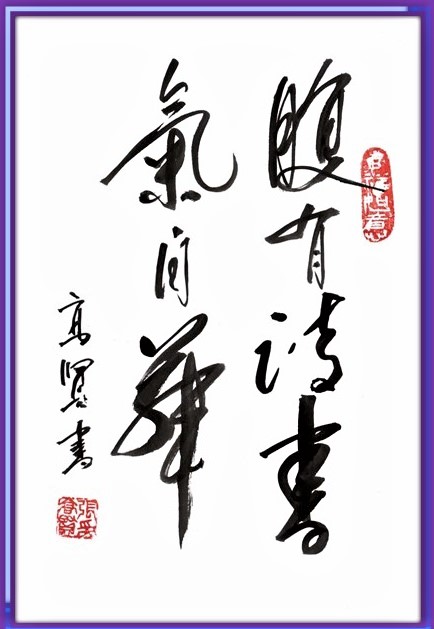 腹有詩書
氣自華
高賢書